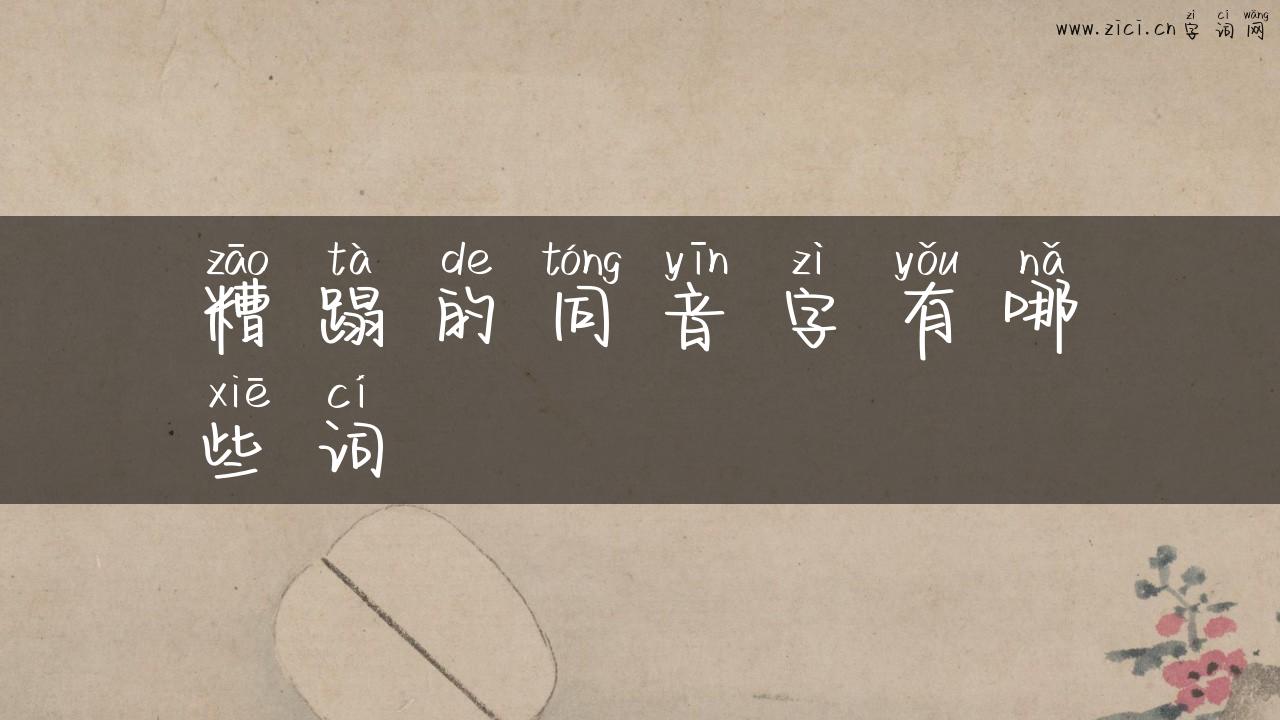 zì cí wǎng
www.zici.cn 字 词 网
zāo tà de tóng yīn zì yǒu nǎ
糟 蹋 的 同 音 字 有 哪
xiē cí
些 词